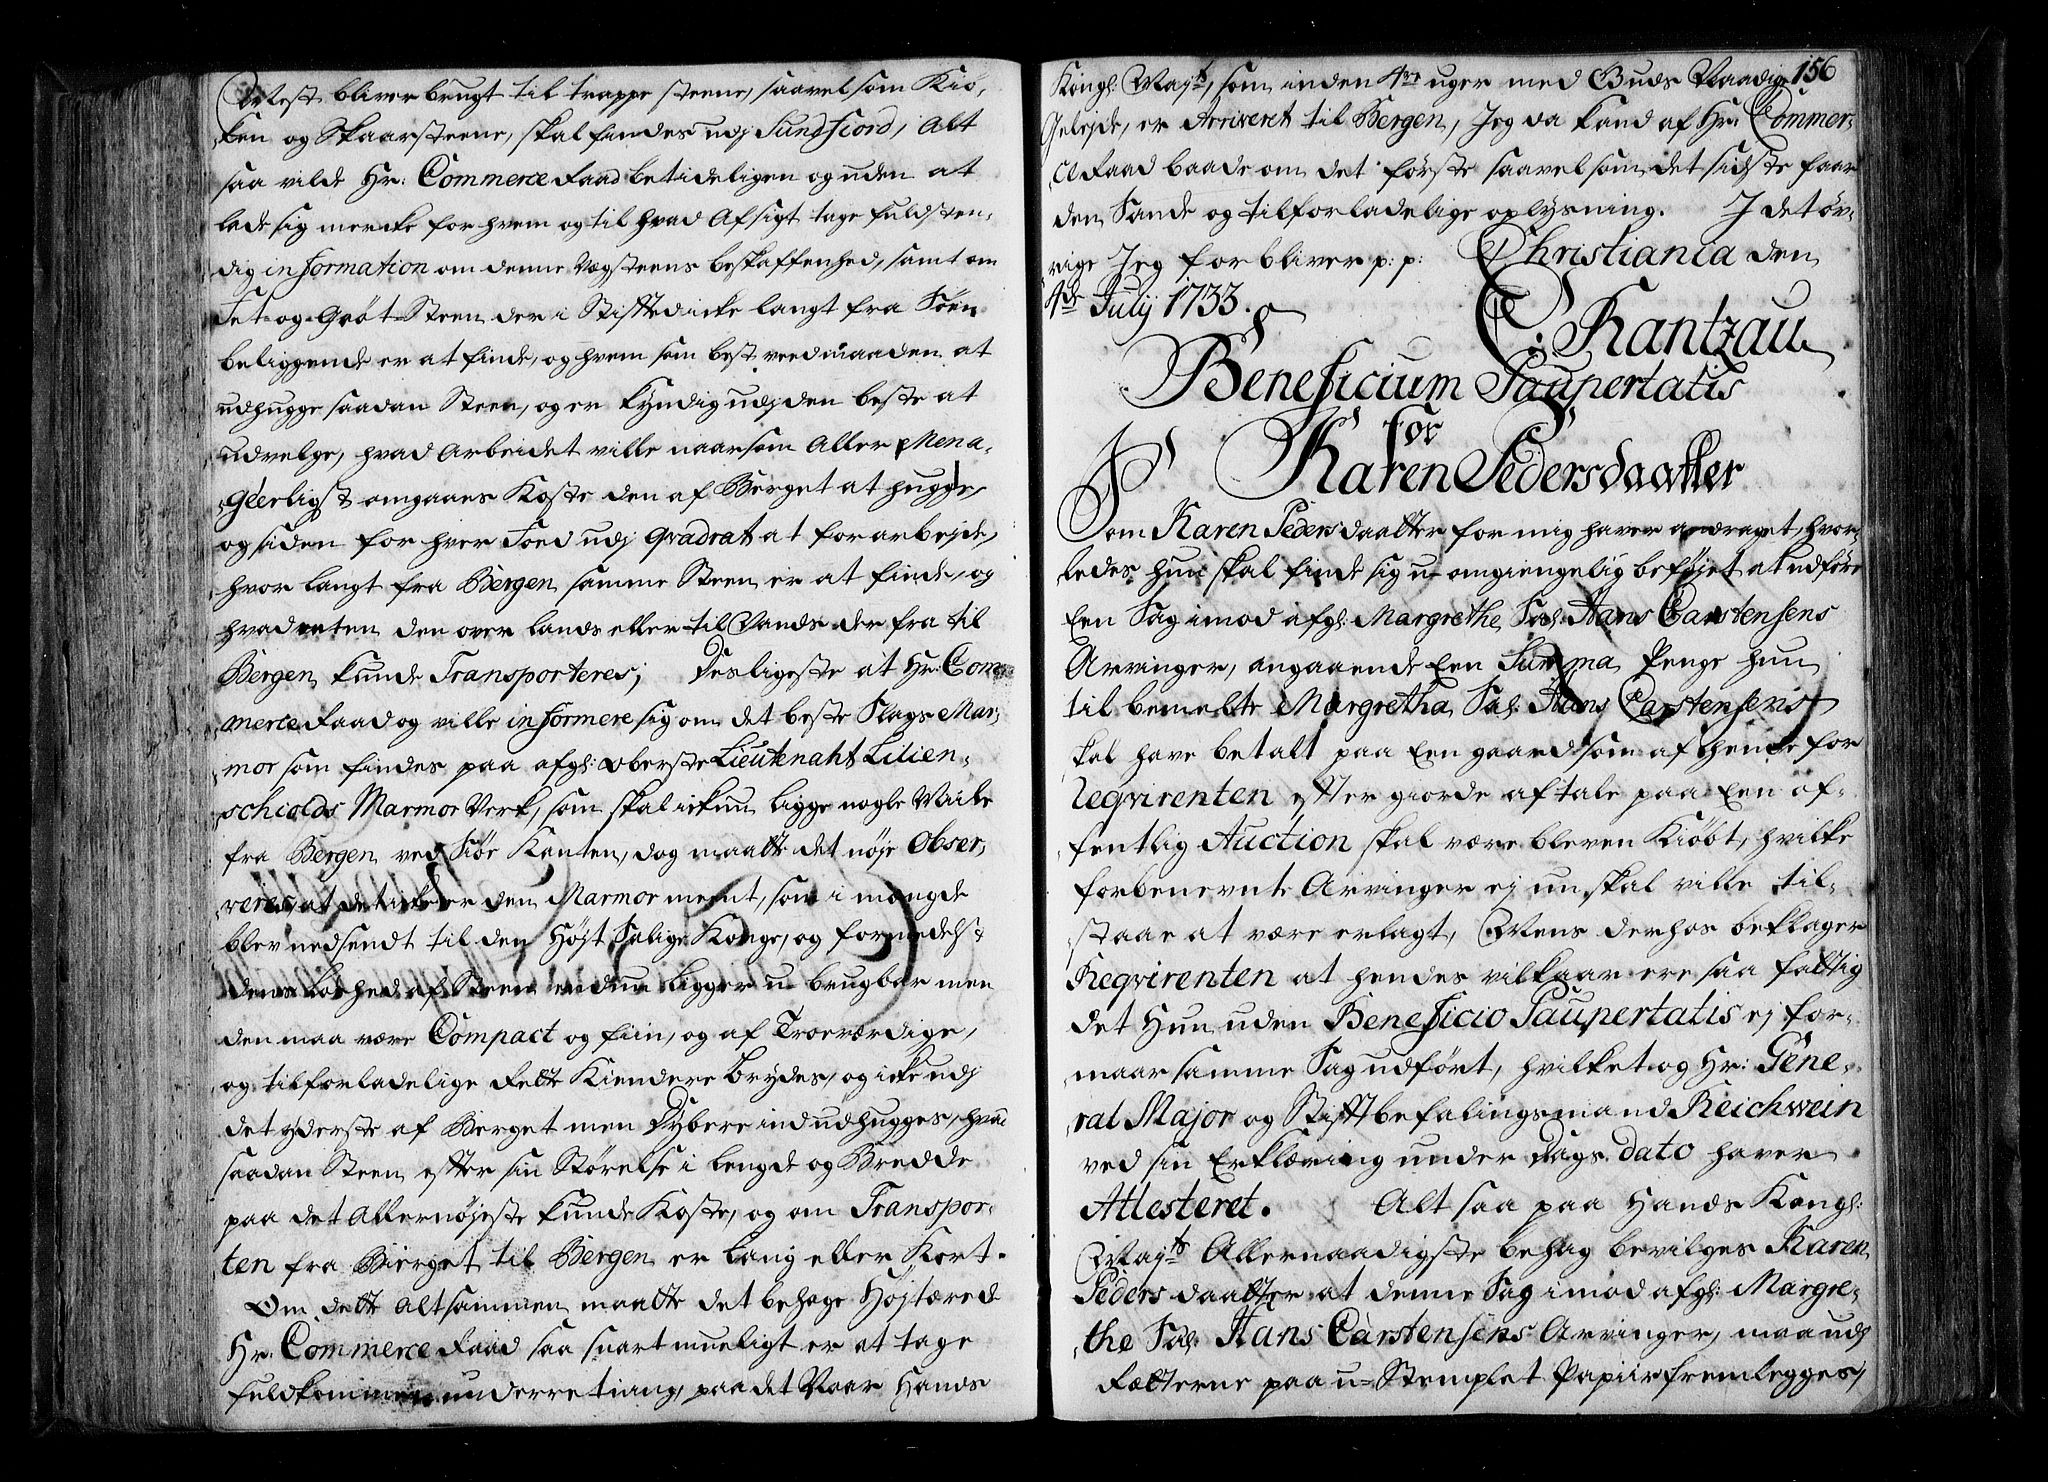 Mest bliver brugt til trappe steene, saavel som Kiø-
ken og Skaarsteene, skal findes udj Sundfiord, Alt
saa vilde Hr: Commerce Raad betideligen og uden at
lade sig mercke for hvem og til hvad Afsigt tage fuldsten-
dig information om denne Vegsteens beskaffenhed, samt om
Fet og Grøt-Steen der i Stifftet icke langt fra Søen
beliggende er at finde, og hvem som best veed maaden at
udhugge saadan Steen, og er kyndig udj den beste at
udvelge, hvad Arbeidet ville naar som Aller Mena-
geerligst omgaaes Koste den af Berget at hugge,
og siden for hver Foed udj Qvadrat at forarbejde,
hvor langt fra Bergen samme Steen er at finde, og
hvad enten den over Lands eller til Vands der fra til
Bergen kunde Transporteres; Desligeste at Hr: Com-
merce Raad og ville informere sig om det beste Slags Mar-
mor som findes paa afg: Oberste Lieutenant Lilien-
schiolds Marmor Verk, som skal ickun ligge nogle Miile
fra Bergen ved Siøe Kanten, dog maatte det nøje Obser-
veres, at det icke er den Marmor meent, som i mengde
blev nedsendt til den Højst Salige Konge, og formedelst
dens Løshed af Steen endnu ligger u-brugbar men
den maa være Compact og fiin, og af Troeværdige,
og tilforladelige Rette Kiendere brydes, og icke udj
det yderste af Berget men Dybere ind udhugges, hvad
saadan Steen efter sin Størelse i Lengde og Bredde
paa det Allernøjeste kunde Koste, og om Transpor-
ten fra Bierget til Bergen er Lang eller Kort.
Om dette altsammen maatte det behage Højtærede
Hr: Commerce Raad saa snart mueligt er at tage
fuldkommen underretning, paa det Naar Hands
156
Kongl: Mayt, som inden 4re uger med Guds Naadige
Gelejde, er Arriveret til Bergen, Jeg da kand af Hr: Commer-
ce Raad baade om det første saavel som det sidste faae
den Sande og tilforladelige oplysning. I det øv-
rige Jeg forbliver p: p: Christiania den
4de July 1733.
C: Rantzau
Beneficium Paupertatis
for
Karen Pedersdaatter
Som Karen Pedersdaatter for mig haver andraget, hvor-
ledes hun skal finde sig u-omgiengelig beføjet at udføre
Een Sag imod afgl: Margrethe Sal: Hans Carstensens
Arvinger, angaaende Een Summa Penge hun
til bemelte Margretha Sal: Hans Carstensens
skal have betalt paa Een gaard som af hende for
Reqvirenten efter giorde aftale paa Een of-
fentlig Auction skal være bleven Kiøbt, hvilke
forbenevnte Arvinger ej nu skal ville til-
staae at være erlagt, Mens derhos beklager
Reqvirenten at hendes vilkaar ere saa fattig
det Hun uden Beneficio Paupertatis ej for-
maar samme Sag udført, hvilket og Hr: Gene-
ral Major og Stifftbefalingsmand Reichwein
ved sin Erklæring under Dags dato haver
Attesteret. Alt saa paa Hands Kongl:
Mayts Allernaadigste behag bevilges Karen
Pedersdaatter at denne Sag imod afgl: Margre-
the Sal: Hans Carstensens Arvinger, maa udj
Rætterne paa u-Stemplet Papiir fremlegges,